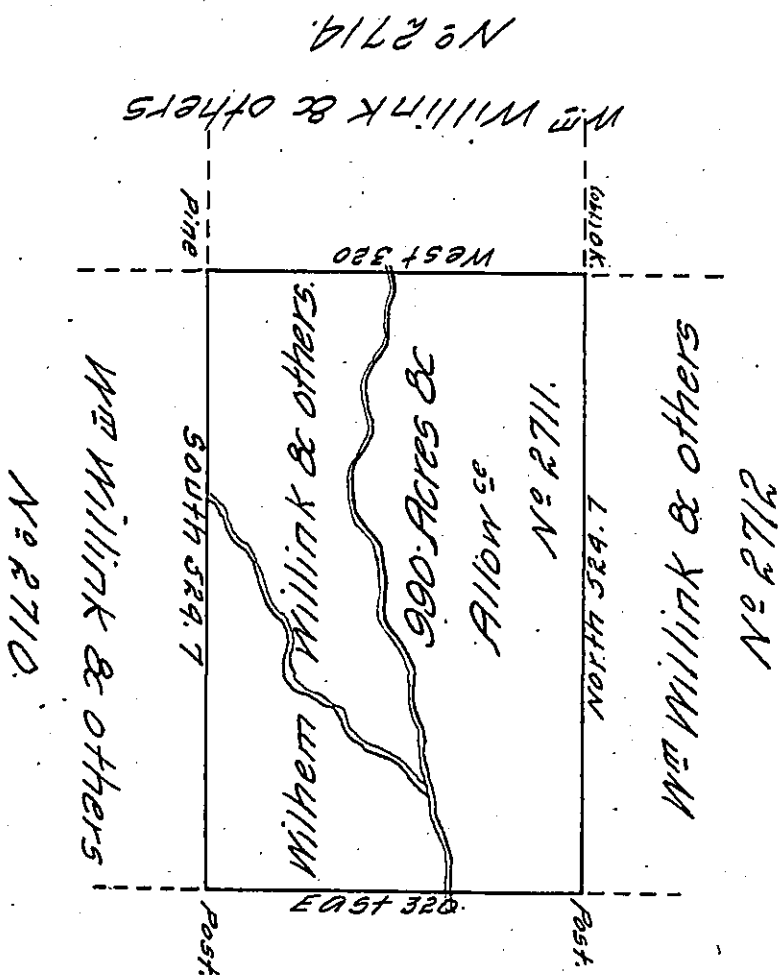 Wm Willink & others
No 2714.
Pine
West 320
Wm Willink & others
No 2710.
South 529.7
Wilhem Willink & others.
990 Acres &
Allowce
No 2711.
North 529.7
Wm Willink & others
No 2712
East 320.
Post.
Post.